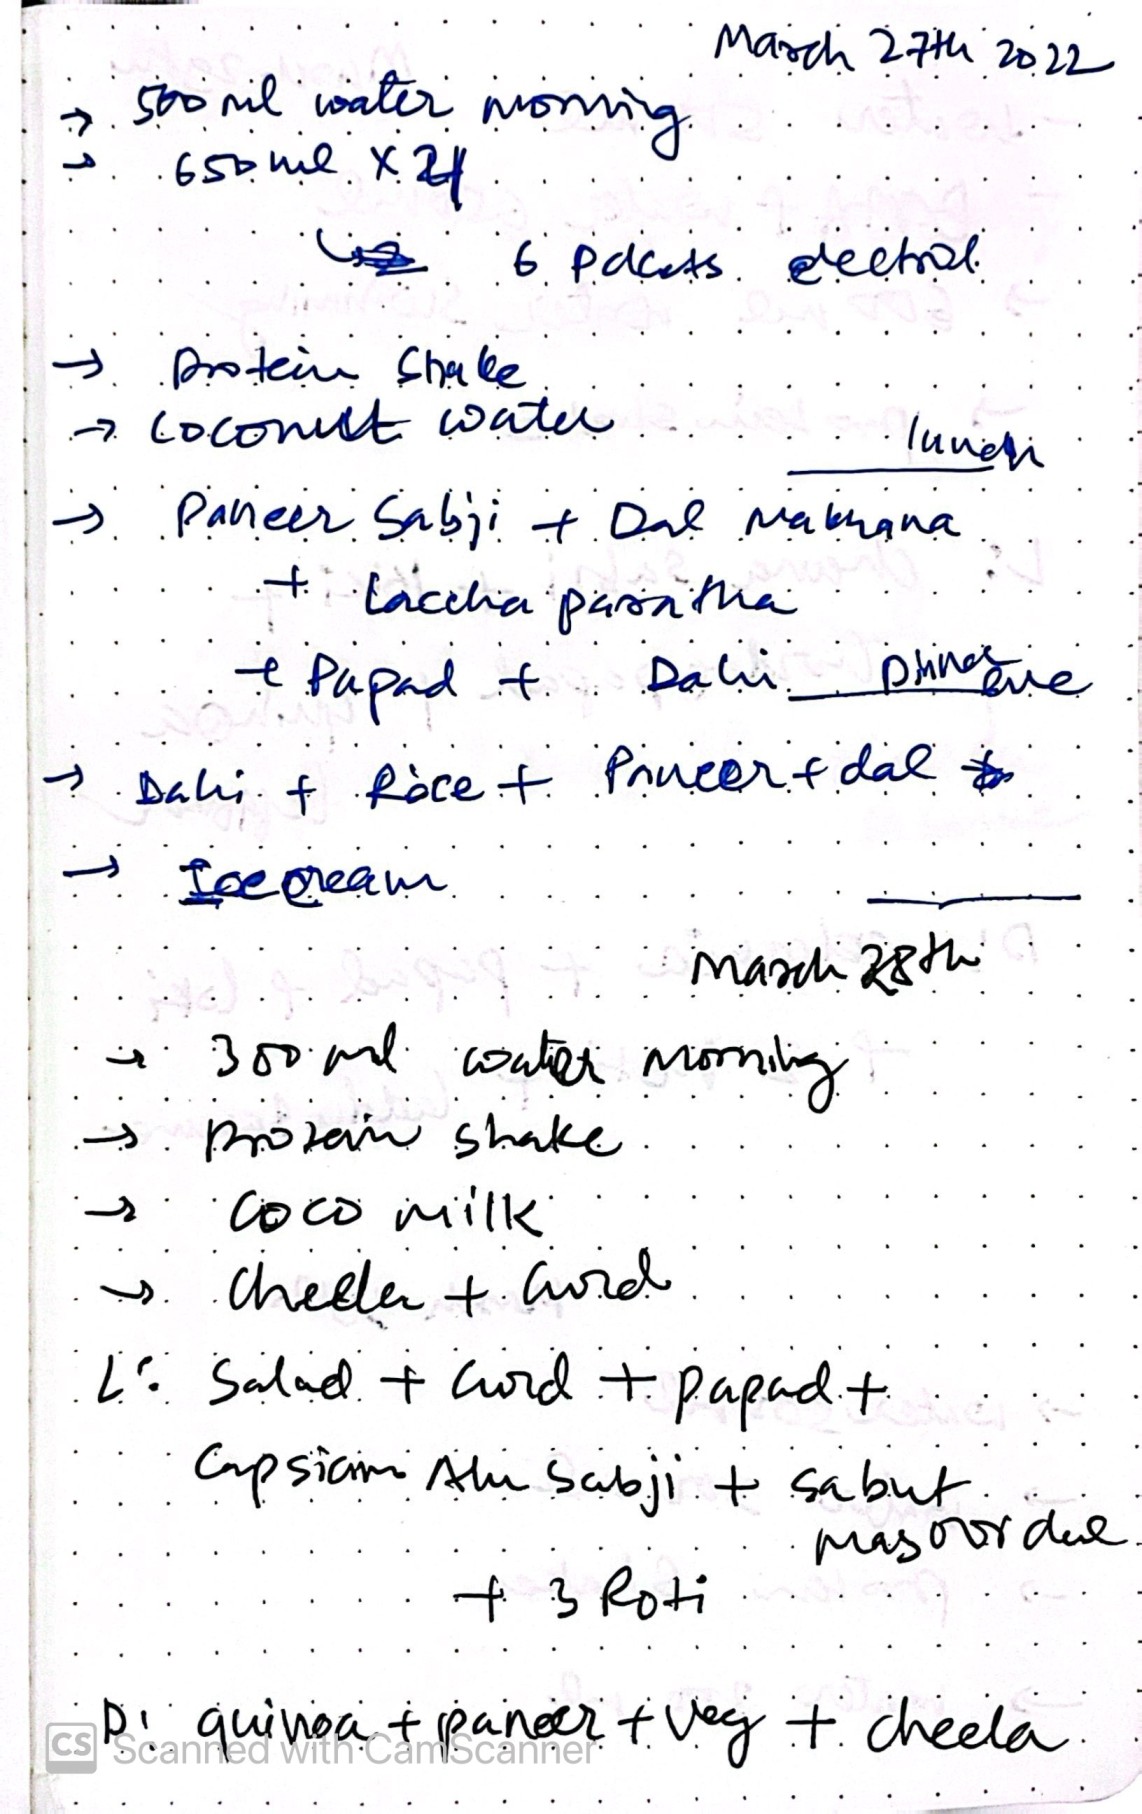 March 27th 2022
→ 500 ml water morning
→ 650 ml X 24
6 packets electral
→ Protein Shake
→ Coconut water
lunch
→ Paneer Sabji + Dal Makhana
+ laccha paratha
+ Papad + Dahi
Dinner
→ Dahi + Rice + Paneer + dal
→ Icecream
March 28th
→ 300 ml water morning
→ Protein shake
→ Coco milk
→ Cheela + Curd
L: Salad + Curd + papad +
Capsicum Alu Sabji + sabut
masoor dal
+ 3 Roti
D: quinoa + paneer + veg + cheela
CS Scanned with CamScanner